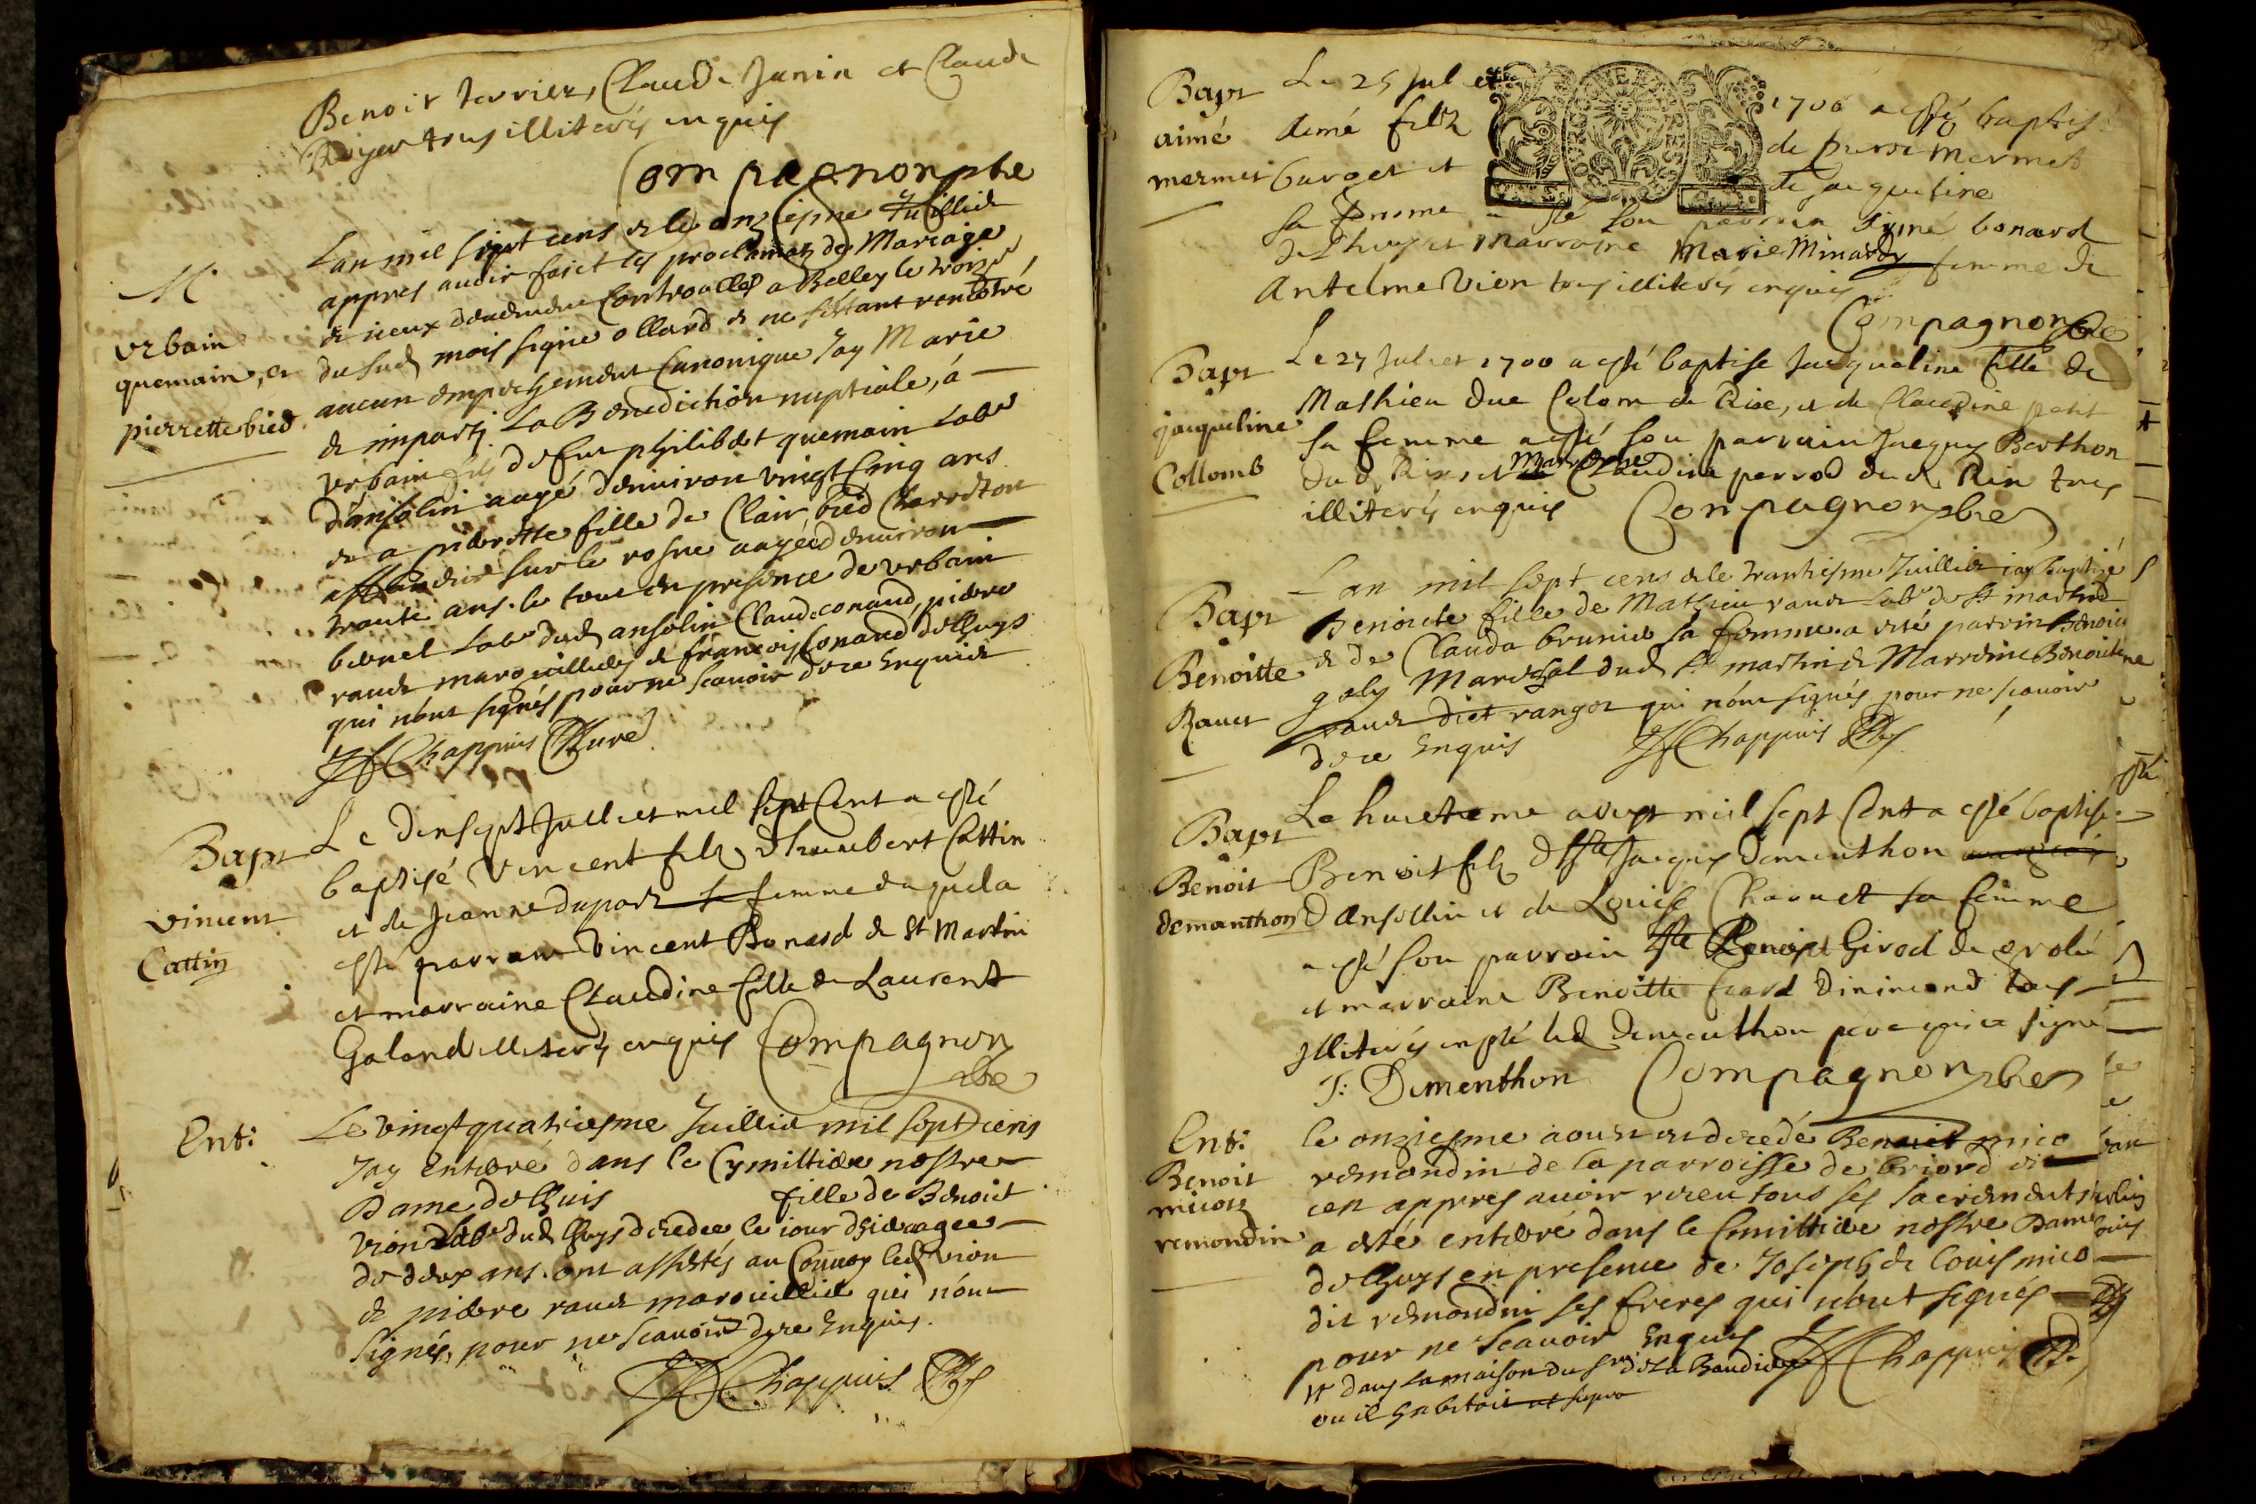 Benoit terrier, Claude Janin et Claude
Royer tous illiterés enquis
Compagnon pbre
M
urbain
quemain, et
pierrette bied
Lan mil sept cens & le onziesme Juilliet
appres avoir faict les proclamaõns de Mariage
& iceux controolles a Belley le
du sud mois signé ollard & ne sestant rencotré
aucun empeschement Canonique Jay Marie
& imparty La Benediction nuptiale, a
urbain fils de feu philibert quemain Labr
dansolin aagé denviron vingt Cinq ans
et a pierrette fille de Clair bied Charreton
sur le rosne aagée denviron
trante ans. le tout en presence de urbain
bevnel Labr dud ansolin Claude conand, pierre
raude marguillier & françois Conand de Lhuys
qui nont signés pour ne scavoir de ce Enquis
Chappuis Curé
Bapt
vincent
Cattin
Le dixsept Juillet mil sept Cent a esté
baptisé Vincent filz dhumbert Cattin
et de Jeanne duport sa femme duquel a
esté parrain Vincent Bonard de St Martin
et marraine Claudine fille de Laurent
Goland illiterés enquis Compagnon
pbre
Ent:
Le vingt quatriesme Juilliet mil sept cens
Jay enterré dans le Cymittiere nostre
Dame de Lhuis fille de Benoict
vion Labr dud Lhuys decedee le iour dhier aagee
de deux ans. ont assistés au Convoy led vion
& pierre raude marguillier qui nont
signés pour ne scavoir de ce Enquis.
Chappuis
Bapt
aimé
mermet
Le 25 Julet 1700 a esté baptisé
aimé filz de pierre mermet
barget et de jacqueline
sa femme a esté son parrain aimé bonard
de Lhuys et marraine Marie Minardy femme de
Antelme Vion tous illiterés enquis
Compagnon pbre
Bapt
jacqueline
Collomb
Le 27 Julet 1700 a esté baptise Jacqueline fille de
Mathieu due Colom de Rix, et de Claudine petit
sa femme a esté son parrain Jacques Berthon
dud Rix, et marraine Claudine perrod dud Rix tous
illiterés enquis Compagnon pbre
Bapt
Benoitte
Raudt
Lan mil sept cens & le trantiesme Juilliet iay Baptisé
Benoicte fille de Mathieu raudt Labr de St martin
& de Clauda brunier sa femme. a esté parrin Benoict
galy Mareschal dud St martin & Marrine Benoicte
raudt dict rangot qui nont signés pour ne scavoir
de ce Enquis Chappuis
Bapt
Benoit
demanthon
Le huictieme aoust mil sept Cent a esté baptisé
Benoit filz de Jacques Dementhon
Dansolin et de Louise Charvet sa femme
a esté son parrain Benoist Girod de
et marraine Benoitte tous
Illiterés led Dementhon pere qui a signé
J: Dementhon Compagnon pbre
Ent:
Benoit
micoz
remondin
le onziesme aoust est decedé Benoict mico
remondin de la parroisse de briord
appres avoir receu tous ses sacrements
a esté enterré dans le Cimittiere nostre Dame
de Lhuys en presence de Joseph & Louis mico
dit remondin ses freres qui nont signés
pour ne scavoir Enquis Chappuis
dans la maison du Sr de la Baudiere
ou il habitoit